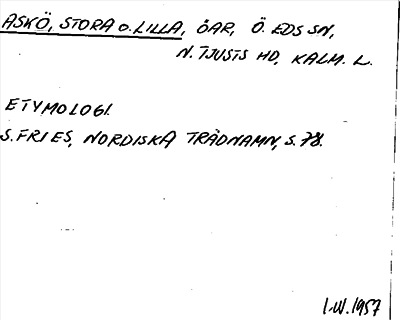 ASKÖ, STORA o. LILLA, ÖAR, Ö. EDS SN,
N. TJUSTS HD, KALM. L.
ETYMOLOGI.
S. FRIES, NORDISKA TRÄDNAMN, S. 78.
I.W. 1957